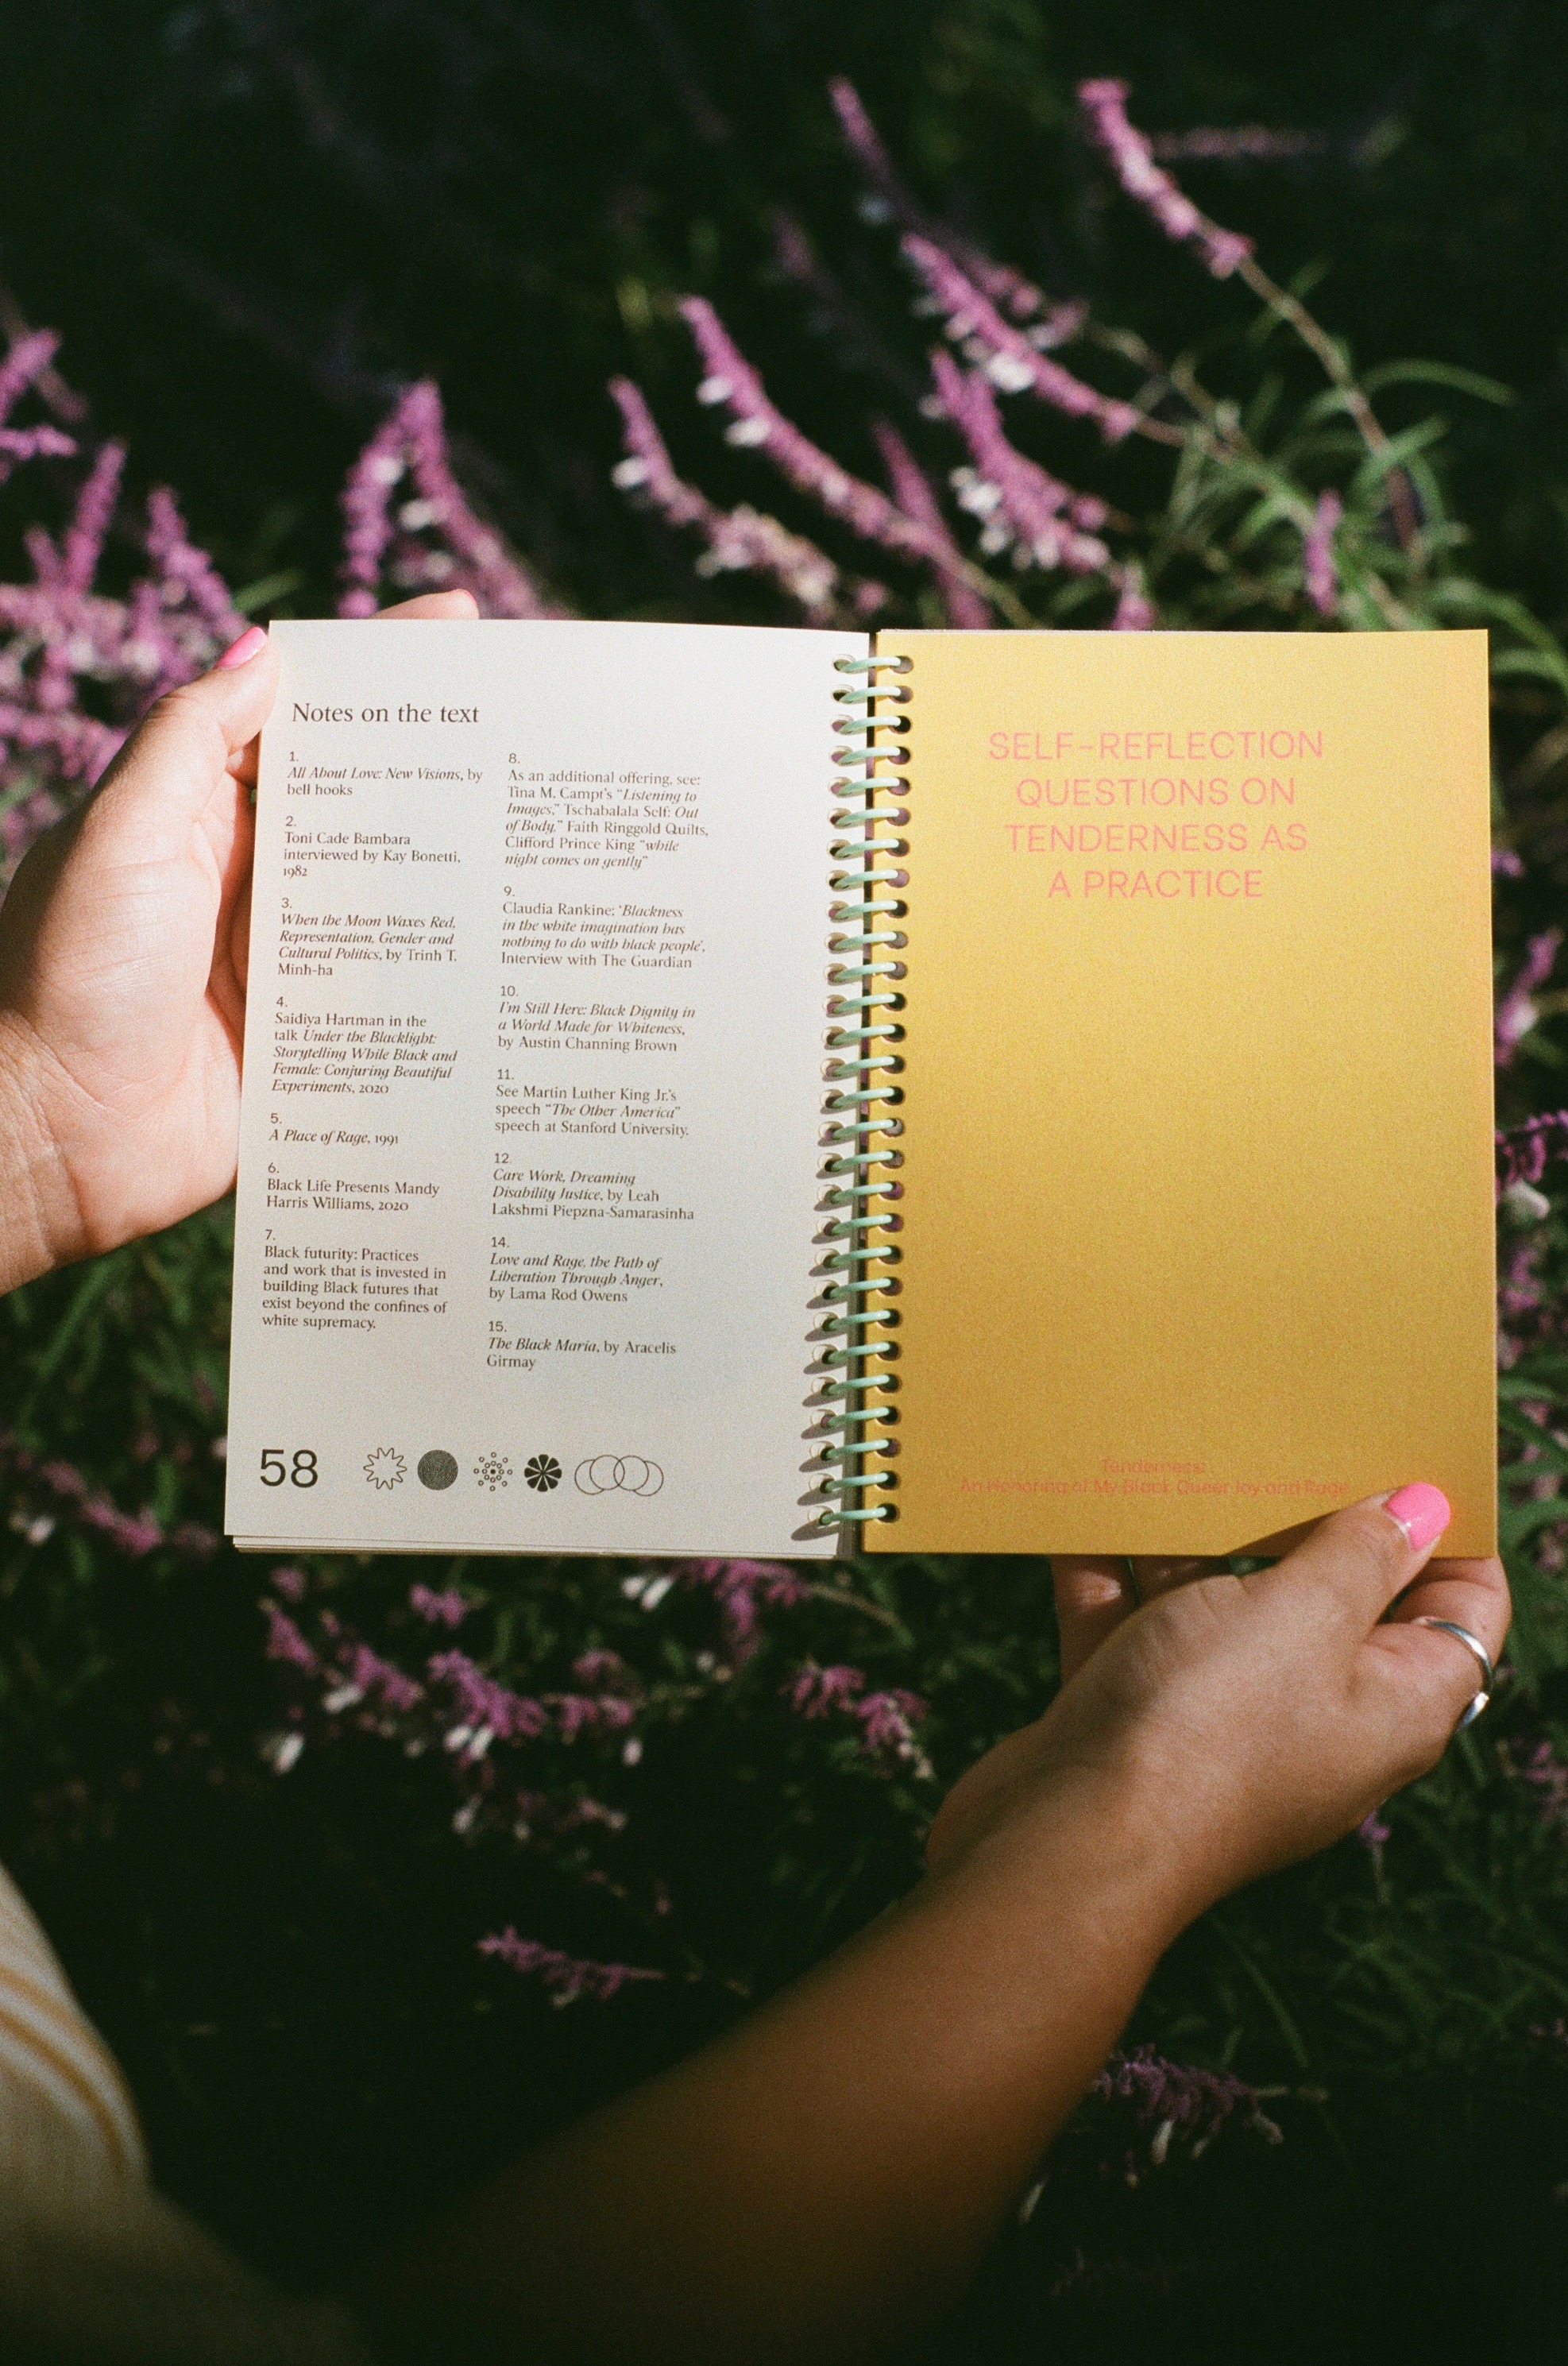 Notes on the text
1.
All About Love: New Visions, by
bell hooks
2.
Toni Cade Bambara
interviewed by Kay Bonetti,
1982
3.
When the Moon Waxes Red,
Representation, Gender and
Cultural Politics, by Trinh T.
Minh-ha
4.
Saidiya Hartman in the
talk Under the Blacklight:
Storytelling While Black and
Female: Conjuring Beautiful
Experiments, 2020
5.
A Place of Rage, 1991
6.
Black Life Presents Mandy
Harris Williams, 2020
7.
Black futurity: Practices
and work that is invested in
building Black futures that
exist beyond the confines of
white supremacy.
8.
As an additional offering, see:
Tina M. Campt's "Listening to
Images," Tschabalala Self: Out
of Body," Faith Ringgold Quilts,
Clifford Prince King "while
night comes on gently"
9.
Claudia Rankine: 'Blackness
in the white imagination has
nothing to do with black people',
Interview with The Guardian
10.
I'm Still Here: Black Dignity in
a World Made for Whiteness,
by Austin Channing Brown
11.
See Martin Luther King Jr.'s
speech "The Other America"
speech at Stanford University.
12.
Care Work, Dreaming
Disability Justice, by Leah
Lakshmi Piepzna-Samarasinha
14.
Love and Rage, the Path of
Liberation Through Anger,
by Lama Rod Owens
15.
The Black Maria, by Aracelis
Girmay
58
SELF-REFLECTION
QUESTIONS ON
TENDERNESS AS
A PRACTICE
Tenderness:
An Honoring of My Black Queer Joy and Rage